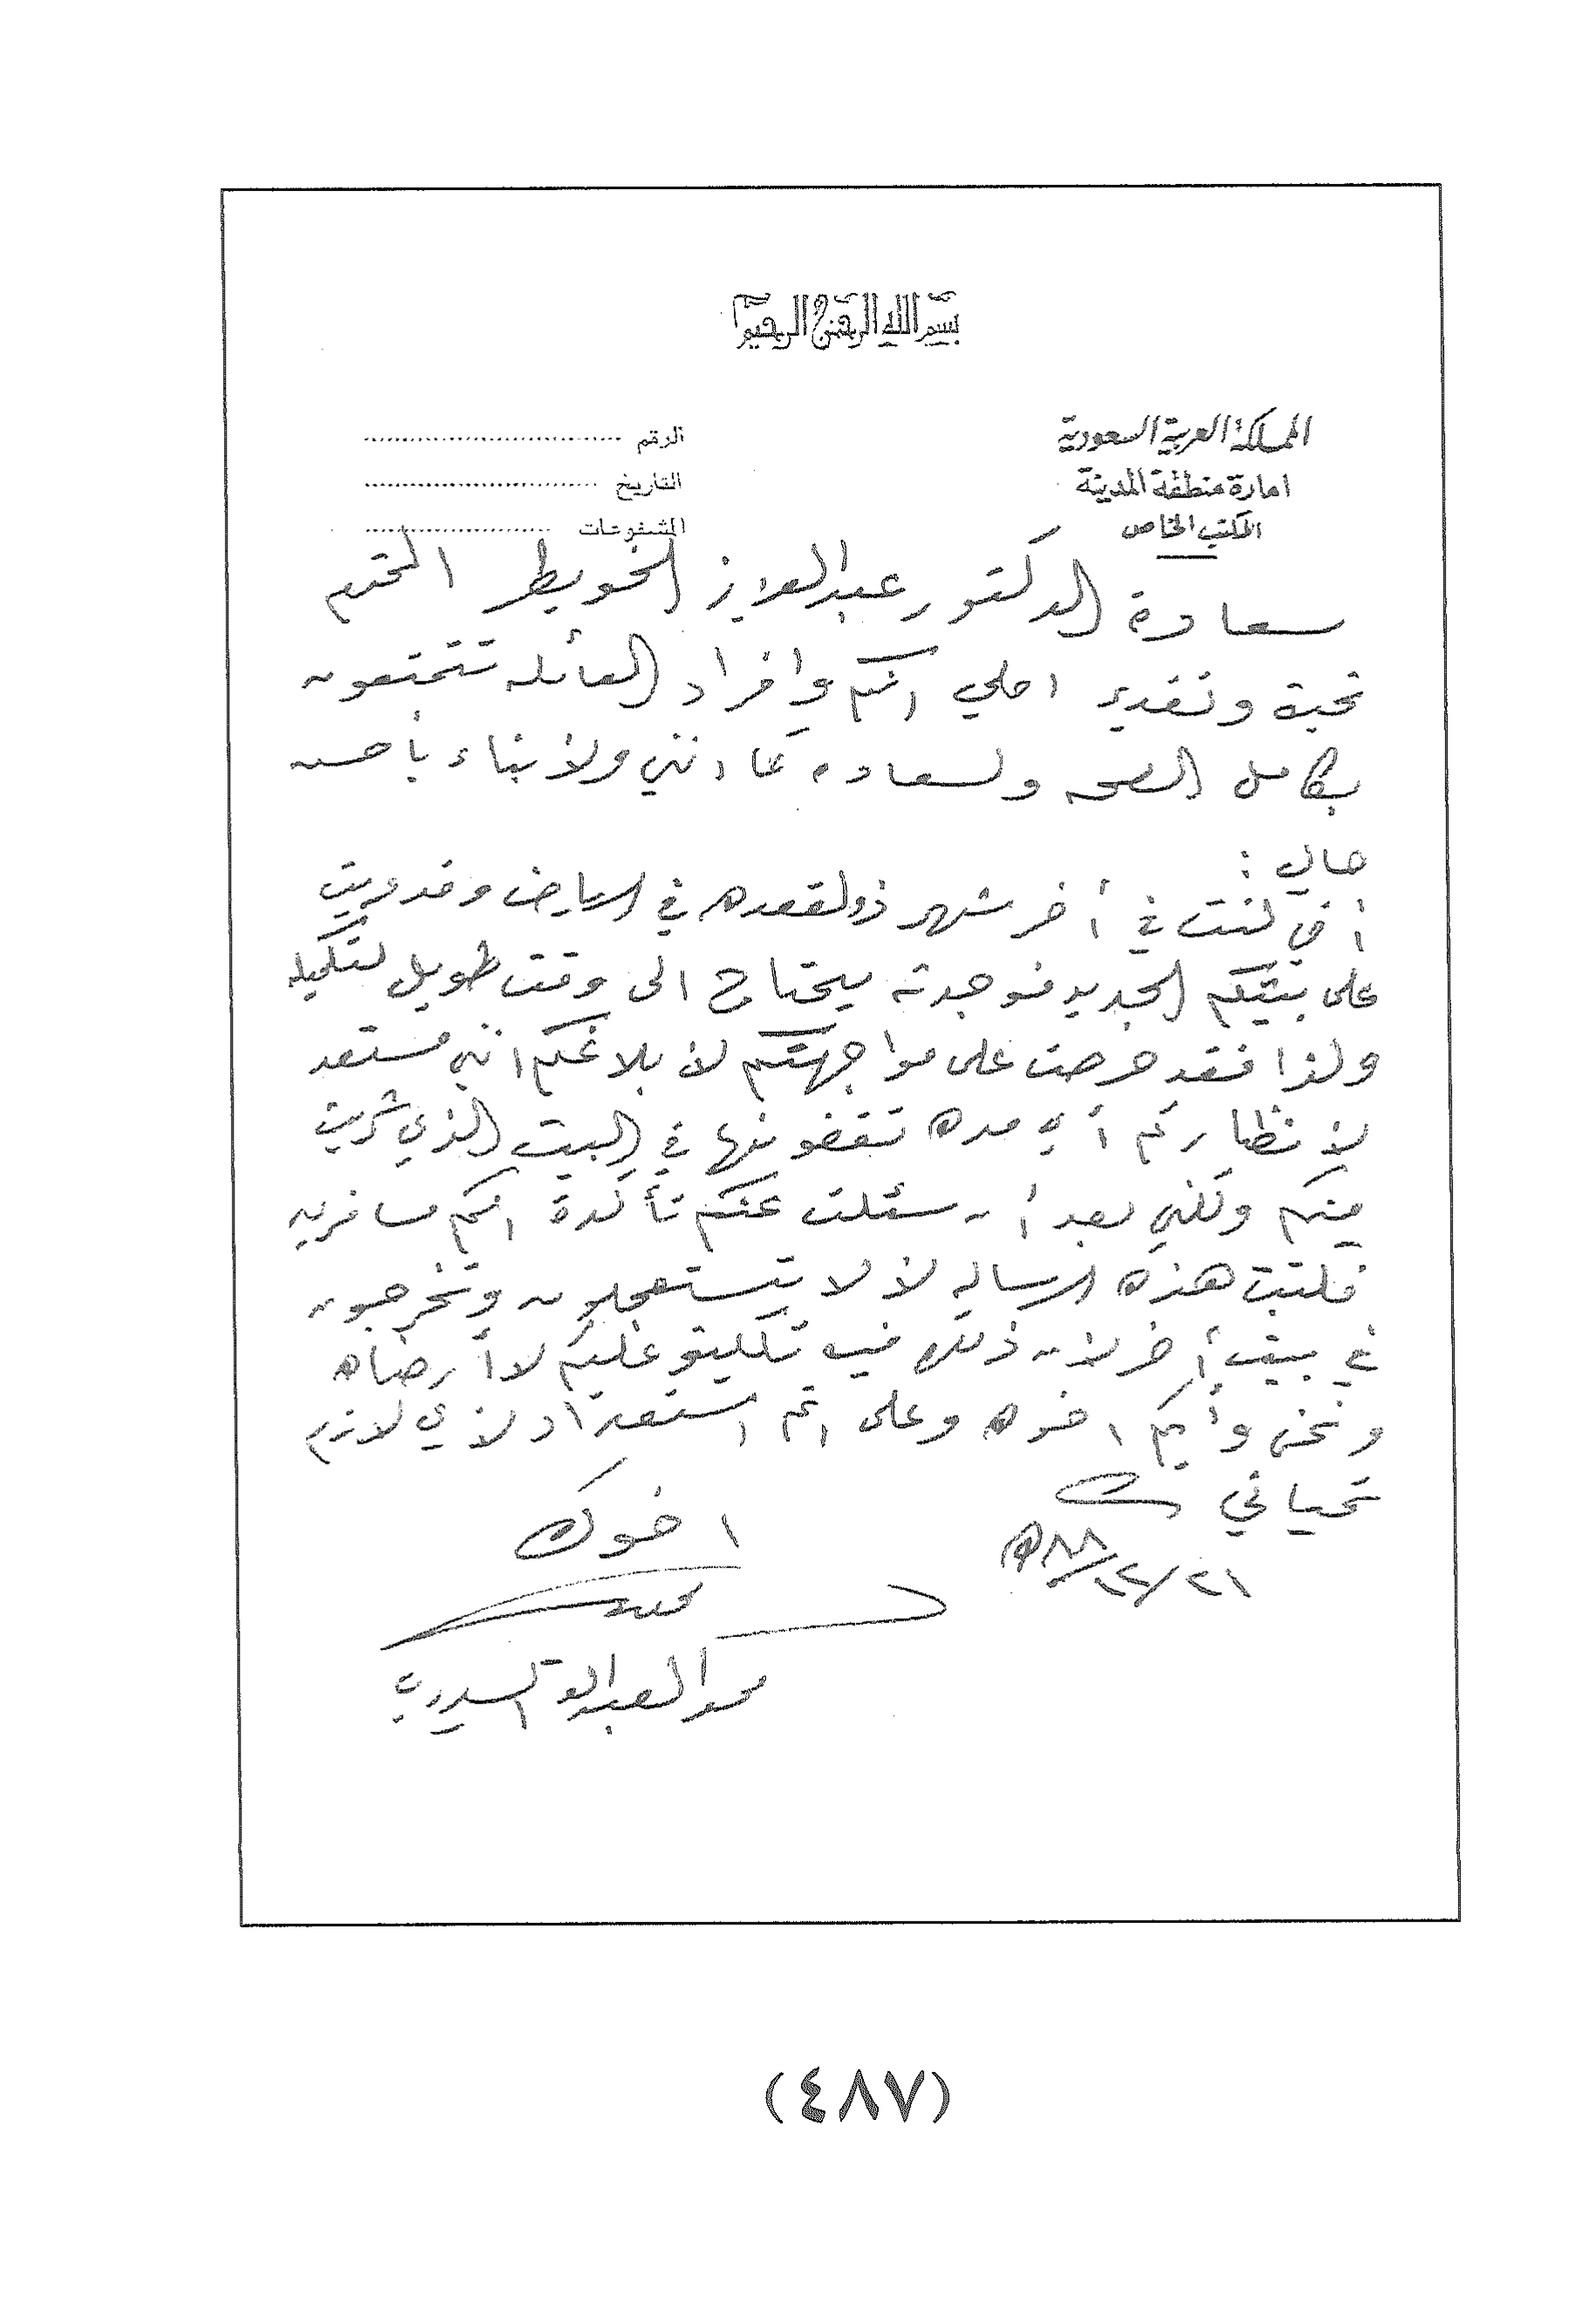 بسم الله الرحمن الرحيم
المملكة العربية السعودية
امارة منطقة المدينة
المكتب الخاص
الرقم
التاريخ
المشفوعات
سعادة الدكتور عبدالعزيز الخويطر المحترم
تحية وتقدير املي انكم وافراد العائله تتمتعون
بكامل الصحه ولسعاده كما انني ولابناء بأحسن
حالي :
أخي كنت في أخر شهر ذولقعده في الرياض وقد مريت
على بيتكم الجديد فوجدته يحتاج الى وقت طويل لتكميله
ولذا فقد حرصت على مواجهتكم لأبلاغكم انني مستعد
لانظاركم أي مده تقضونها في البيت الذي شريت
منكم ولكني بعد أن سئلت عنكم تأكدة انكم مسافرين
فكتبت هذه الرساله لأن لا تستعجلون وتخرجون
في بيت أخر لأن ذلك فيه تكليف عليكم لا أرضاه
ونحن وأيكم اخوه وعلى اتم استعداد لأي لازم
تحياتي
٢١/١٢/٨٨ه
اخوك
محمد
محمد العبدالله السديري
(٤٨٧)